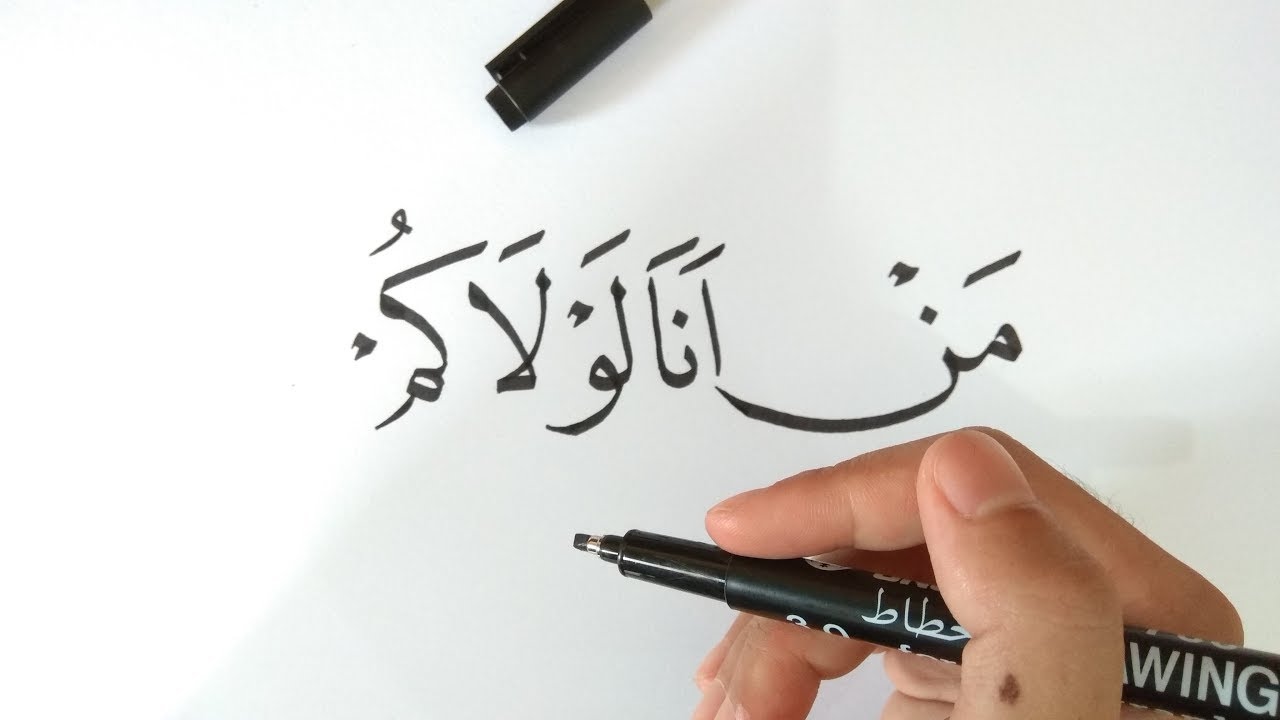 مَنْ اَنَا لَوْلَاكُمْ
خطاط
AWING